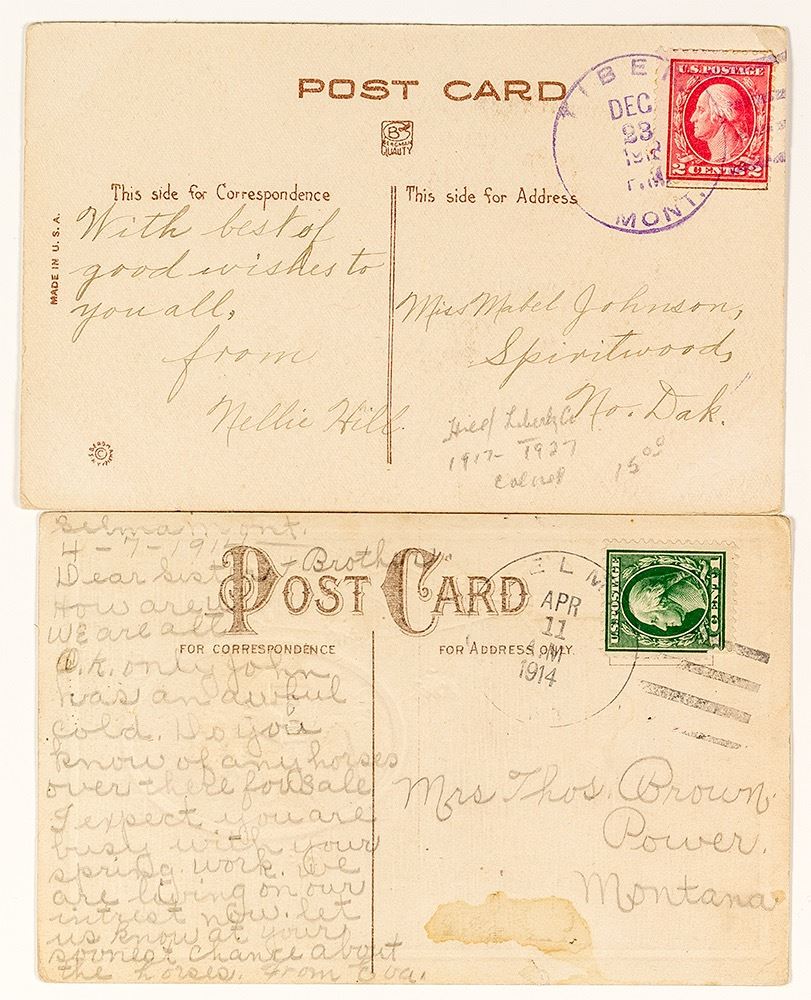 POST CARD
BERGMAN
QUALITY
TIBER
DEC.
23
1912
P.M.
MONT.
U.S. POSTAGE
2 CENTS 2
This side for Correspondence
This side for Address
MADE IN U.S.A.
With best of
good wishes to
you all,
from
Nellie Hill
Miss Mabel Johnson,
Spiritwood,
No. Dak.
Liberty Co
1917-1927
15.00
Selma Mont.
4-7-191
Dear Sister + Brother
How are
We are all
O.K. only John
has an awful
cold. Do you
know of any horses
over there for sale
I expect you are
busy with your
spring work. We
are living on our
intrest now. let
us know at your
soonest chance about
the horses. From Eva.
POST CARD
FOR CORRESPONDENCE
FOR ADDRESS ONLY.
ELM
APR
11
A.M.
1914
U.S. POSTAGE
1 CENT 1
Mrs Thos. Brown
Power.
Montana